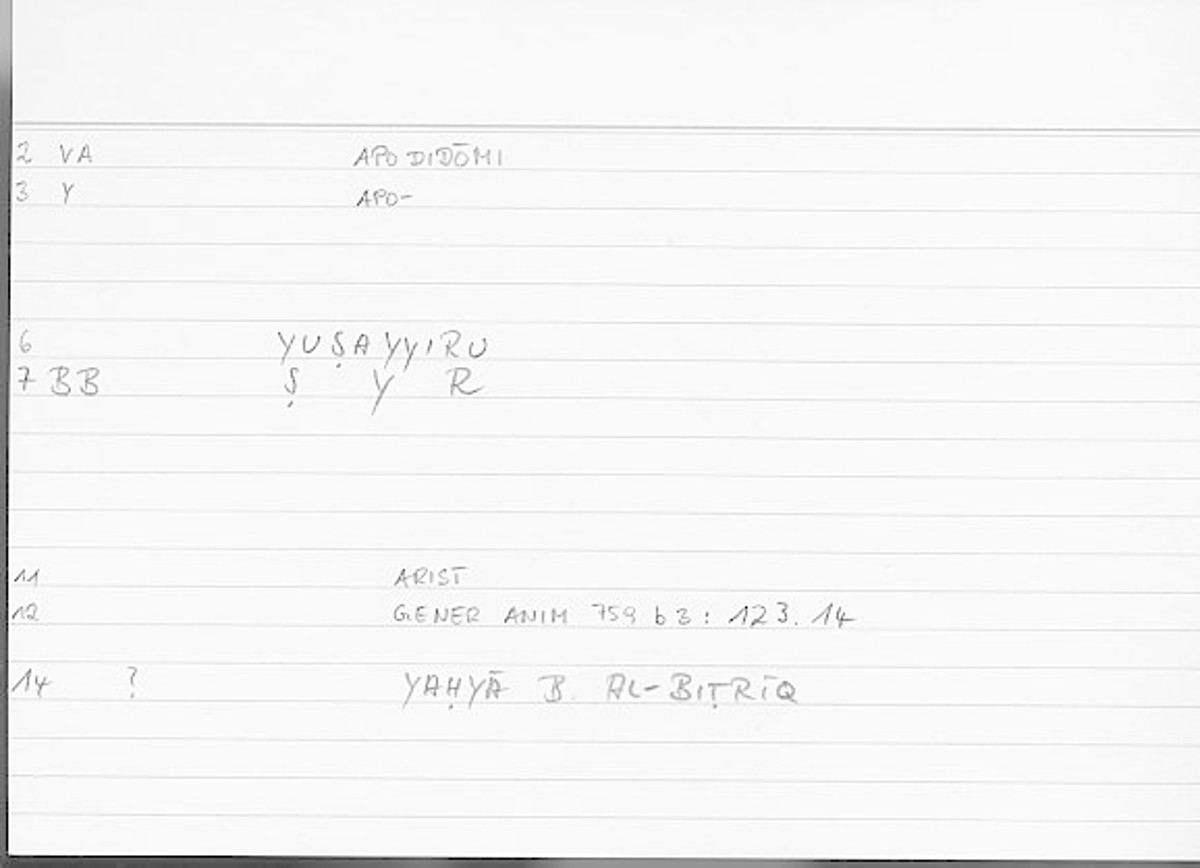 2 VA APODIDŌMI
3 Y APO-
6 YUṢAYYIRU
7 BB Ṣ Y R
11 ARIST
12 GENER ANIM 759 b 3 : 123.14
14 ? YAḤYĀ B. AL-BIṬRĪQ